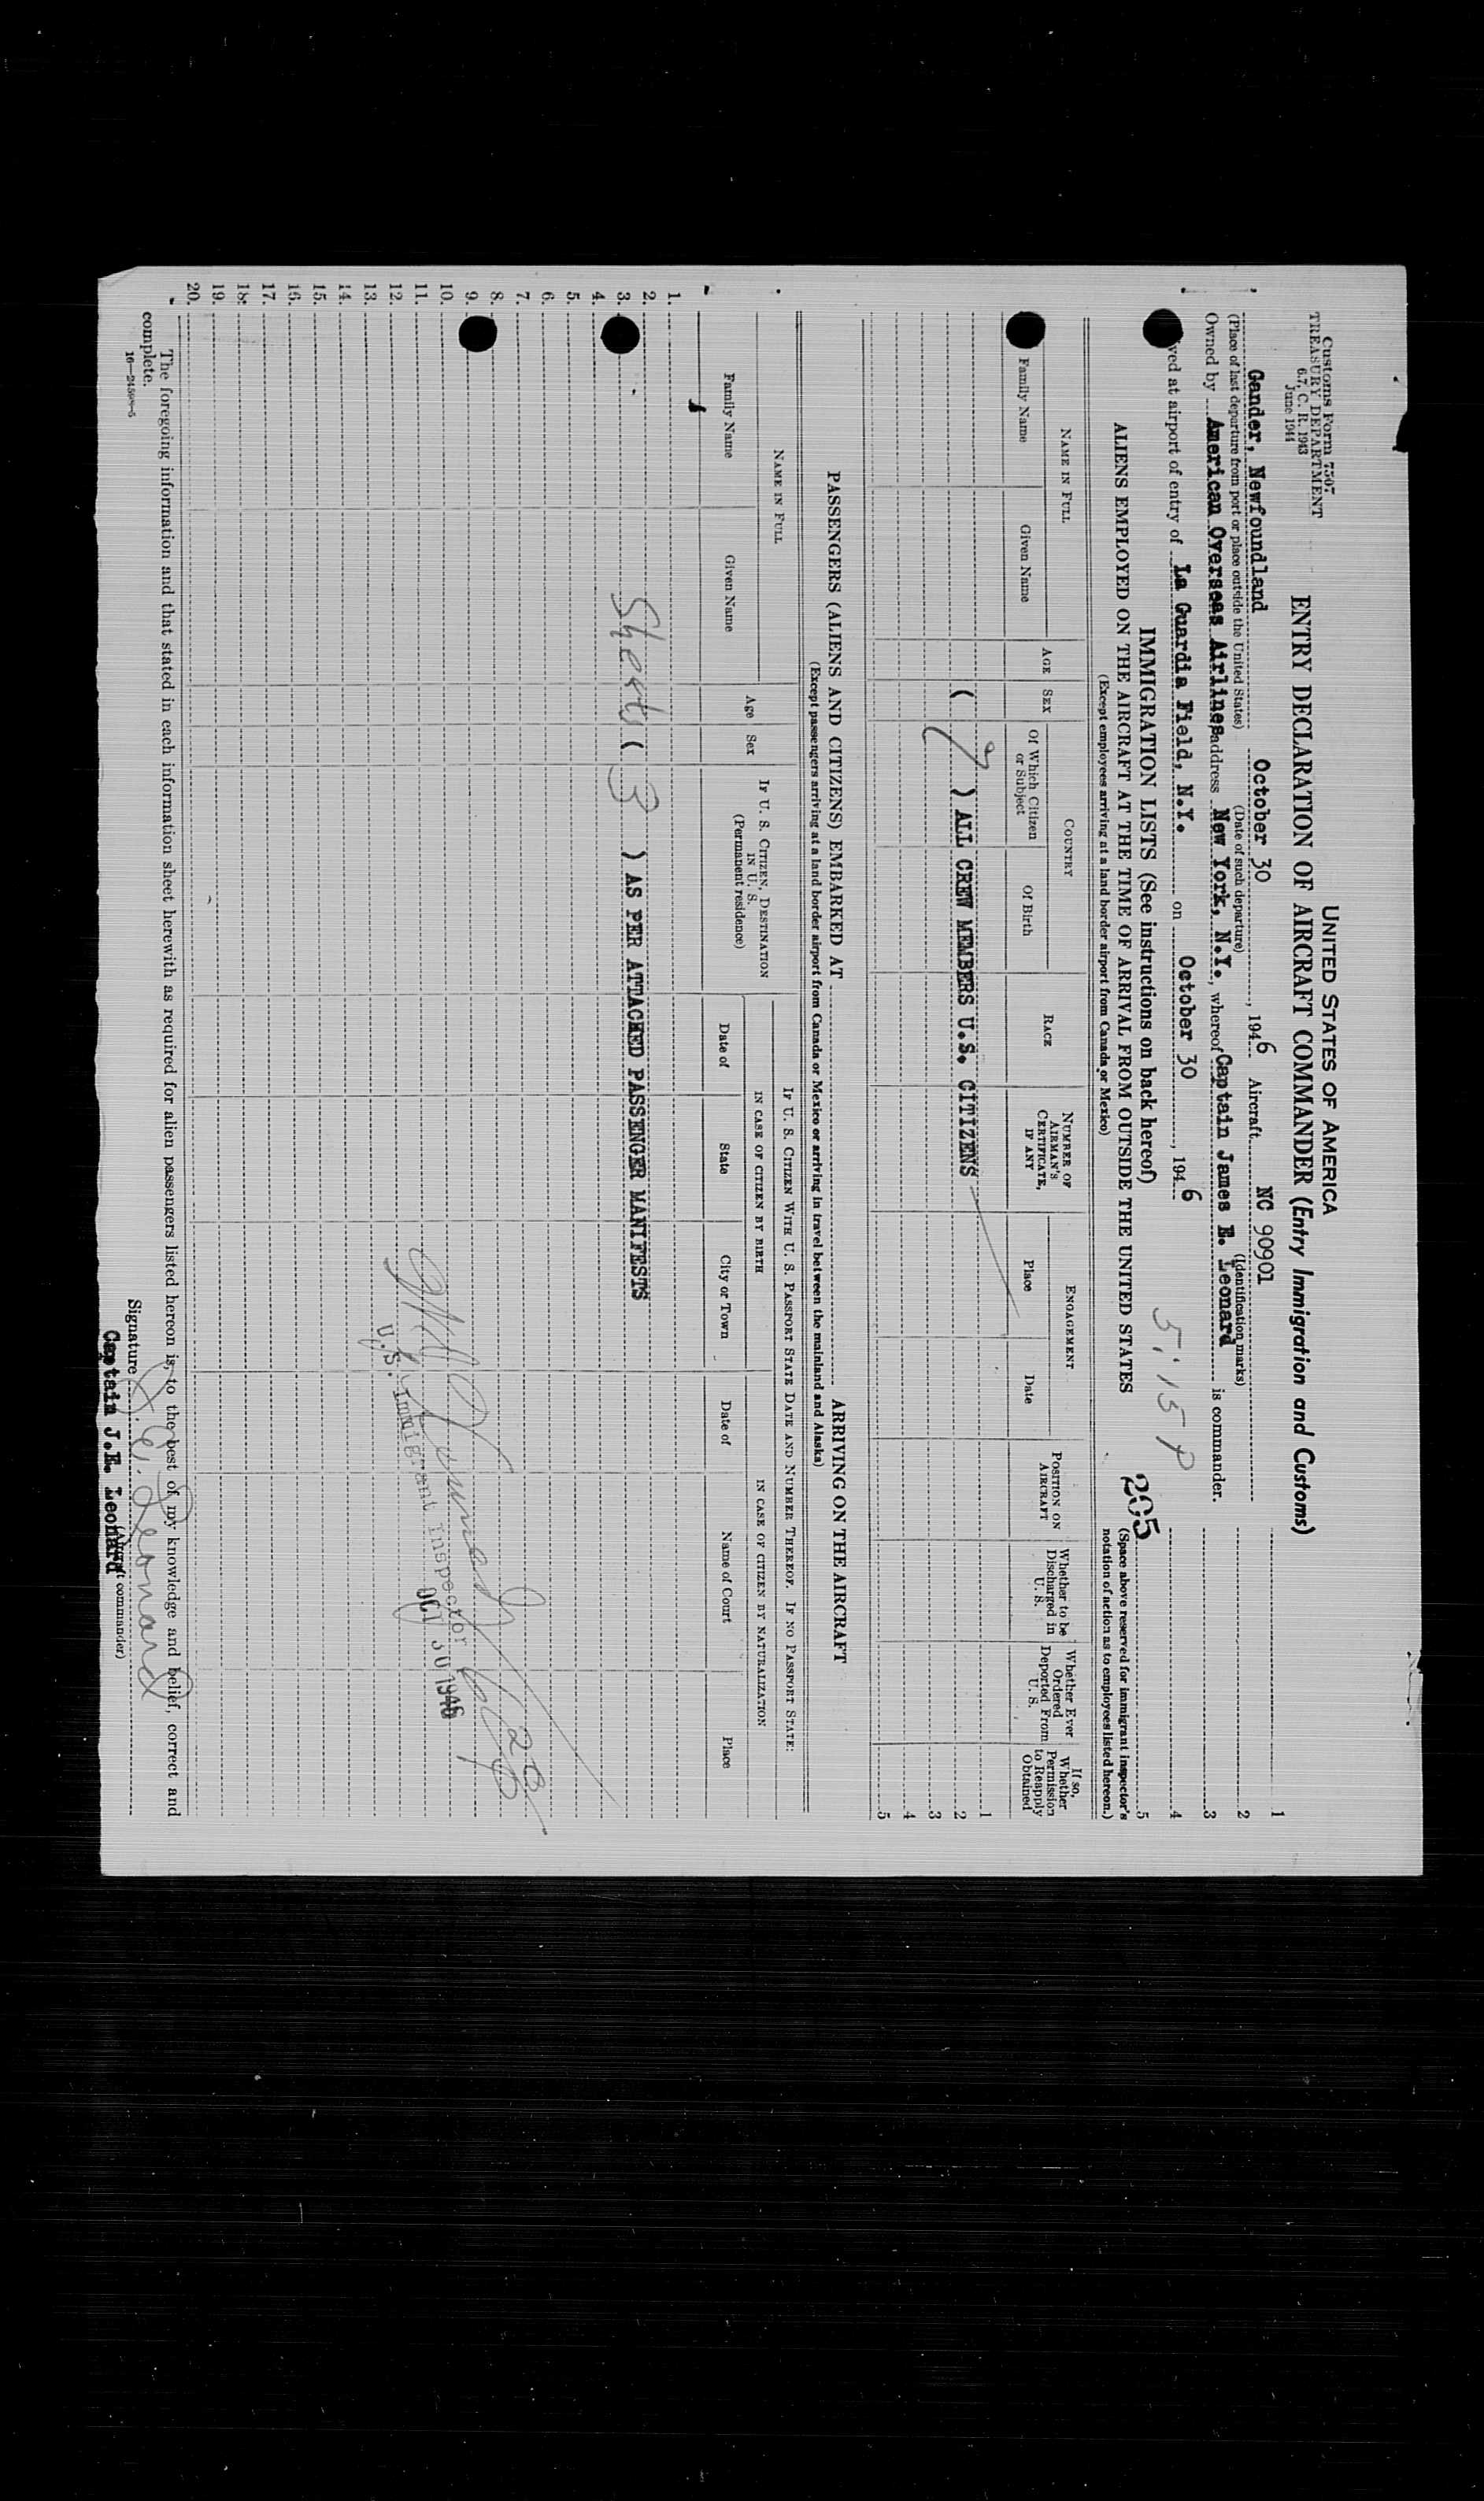 Customs Form 7507
TREASURY DEPARTMENT
6.7, C. R. 1943
June 1944
UNITED STATES OF AMERICA
ENTRY DECLARATION OF AIRCRAFT COMMANDER (Entry Immigration and Customs)
Gander, Newfoundland October 30, 1946 Aircraft NC 90901
(Place of last departure from port or place outside the United States) (Date of such departure) (Identification marks)
Owned by American Overseas Airlines address New York, N.Y., whereof Captain James E. Leonard is commander.
ved at airport of entry of La Guardia Field, N.Y. on October 30, 1946
5:15 P
205
1
2
3
4
5
IMMIGRATION LISTS (See instructions on back hereof)
(Space above reserved for immigrant inspector's notation of action as to employees listed hereon.)
ALIENS EMPLOYED ON THE AIRCRAFT AT THE TIME OF ARRIVAL FROM OUTSIDE THE UNITED STATES
(Except employees arriving at a land border airport from Canada or Mexico)
NAME IN FULL
Family Name Given Name
AGE
SEX
COUNTRY
Of Which Citizen or Subject
Of Birth
RACE
NUMBER OF AIRMAN'S CERTIFICATE, IF ANY
ENGAGEMENT
Place Date
POSITION ON AIRCRAFT
Whether to be Discharged in U. S.
Whether Ever Ordered Deported From U. S.
If so, Whether Permission to Reapply Obtained
( 7 ) ALL CREW MEMBERS U.S. CITIZENS
1
2
3
4
5
PASSENGERS (ALIENS AND CITIZENS) EMBARKED AT ARRIVING ON THE AIRCRAFT
(Except passengers arriving at a land border airport from Canada or Mexico or arriving in travel between the mainland and Alaska)
NAME IN FULL
Family Name Given Name
Age
Sex
IF U. S. CITIZEN, DESTINATION IN U. S.
(Permanent residence)
IF U. S. CITIZEN WITH U. S. PASSPORT STATE DATE AND NUMBER THEREOF. IF NO PASSPORT STATE:
IN CASE OF CITIZEN BY BIRTH
Date of State City or Town
IN CASE OF CITIZEN BY NATURALIZATION
Date of Name of Court Place
1.
2.
3. Sheets ( 3 ) AS PER ATTACHED PASSENGER MANIFESTS
4.
5.
6.
7.
8.
9.
10.
11.
12.
13.
14.
15.
16.
17.
18.
19.
20.
U.S. Immigrant Inspector
OCT 30 1946
The foregoing information and that stated in each information sheet herewith as required for alien passengers listed hereon is, to the best of my knowledge and belief, correct and
complete.
16—24598-5
Signature J. E. Leonard
(Aircraft commander)
Captain J.E. Leonard